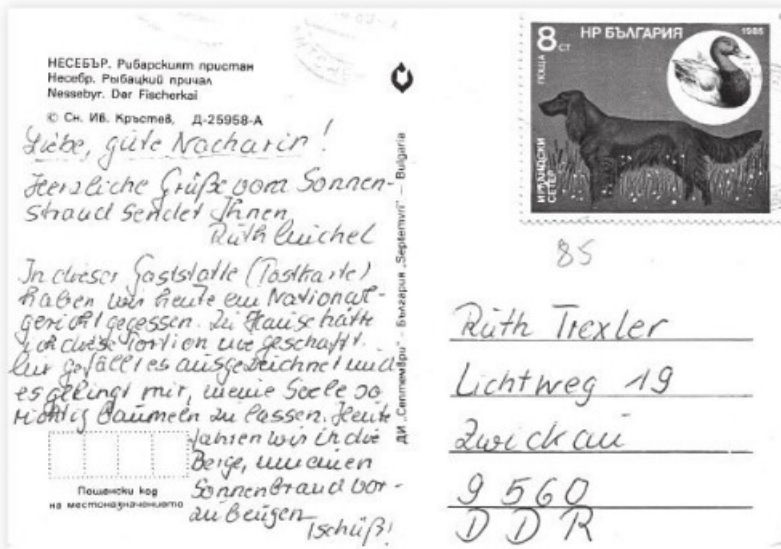 НЕСЕБЪР. Рибарският пристан
Несебр. Рыбацкий причал
Nessebyr. Der Fischerkai
© Сн. Ив. Кръстев, Д-25958-А
Liebe, gute Nacharin!
Herzliche Grüße vom Sonnen-
strand sendet Ihnen
Ruth Michel
In dieser Gaststätte (Postkarte)
haben wir heute ein National-
gericht gegessen. Zu Hause hätte
ich diese Portion nie geschafft.
Mir gefällt es ausgezeichnet und
es gelingt mir, meine Seele so
richtig baumeln zu lassen. Heute
fahren wir in die
Berge, um einen
Sonnenbrand vor-
zubeugen
Tschüß!
Пощенски код
на местоназначението
ДИ „Септември" – България „Septemvri" – Bulgaria
8 СТ
ПОЩА
НР БЪЛГАРИЯ
1985
ИРЛАНДСКИ
СЕТЕР
85
Ruth Trexler
Lichtweg 19
Zwickau
9560
DDR